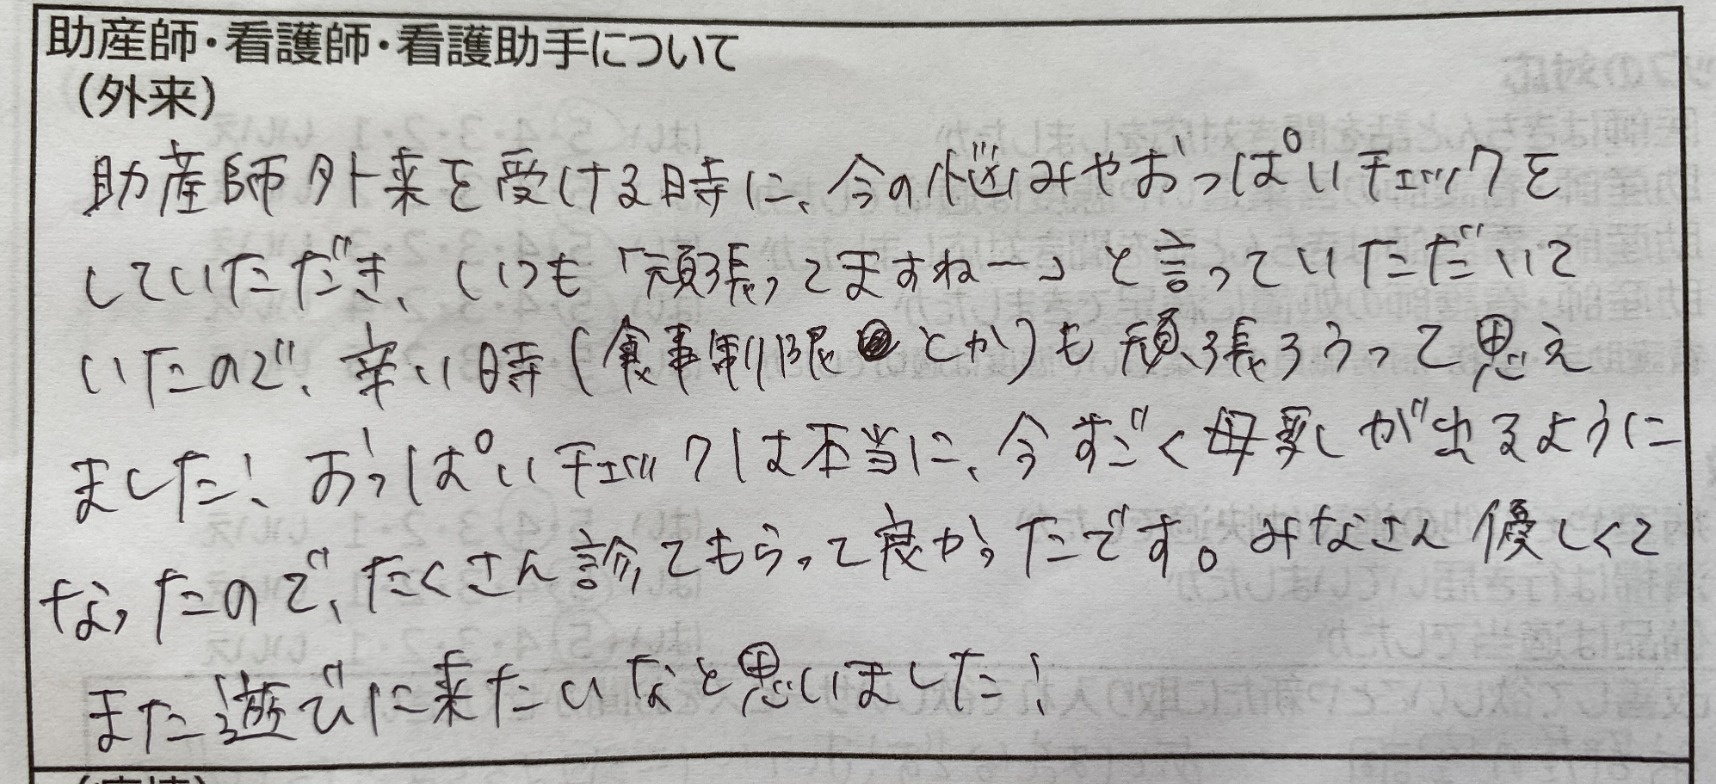 助産師・看護師・看護助手について
（外来）
助産師外来を受ける時に、今の悩みやおっぱいチェックを
していただき、いつも「頑張ってますねー」と言っていただいて
いたので、辛い時(食事制限とか)も頑張ろうって思え
ました！おっぱいチェックは本当に、今すごく母乳が出るように
なったので、たくさん診てもらって良かったです。みなさん優しくて
また遊びに来たいなと思いました！